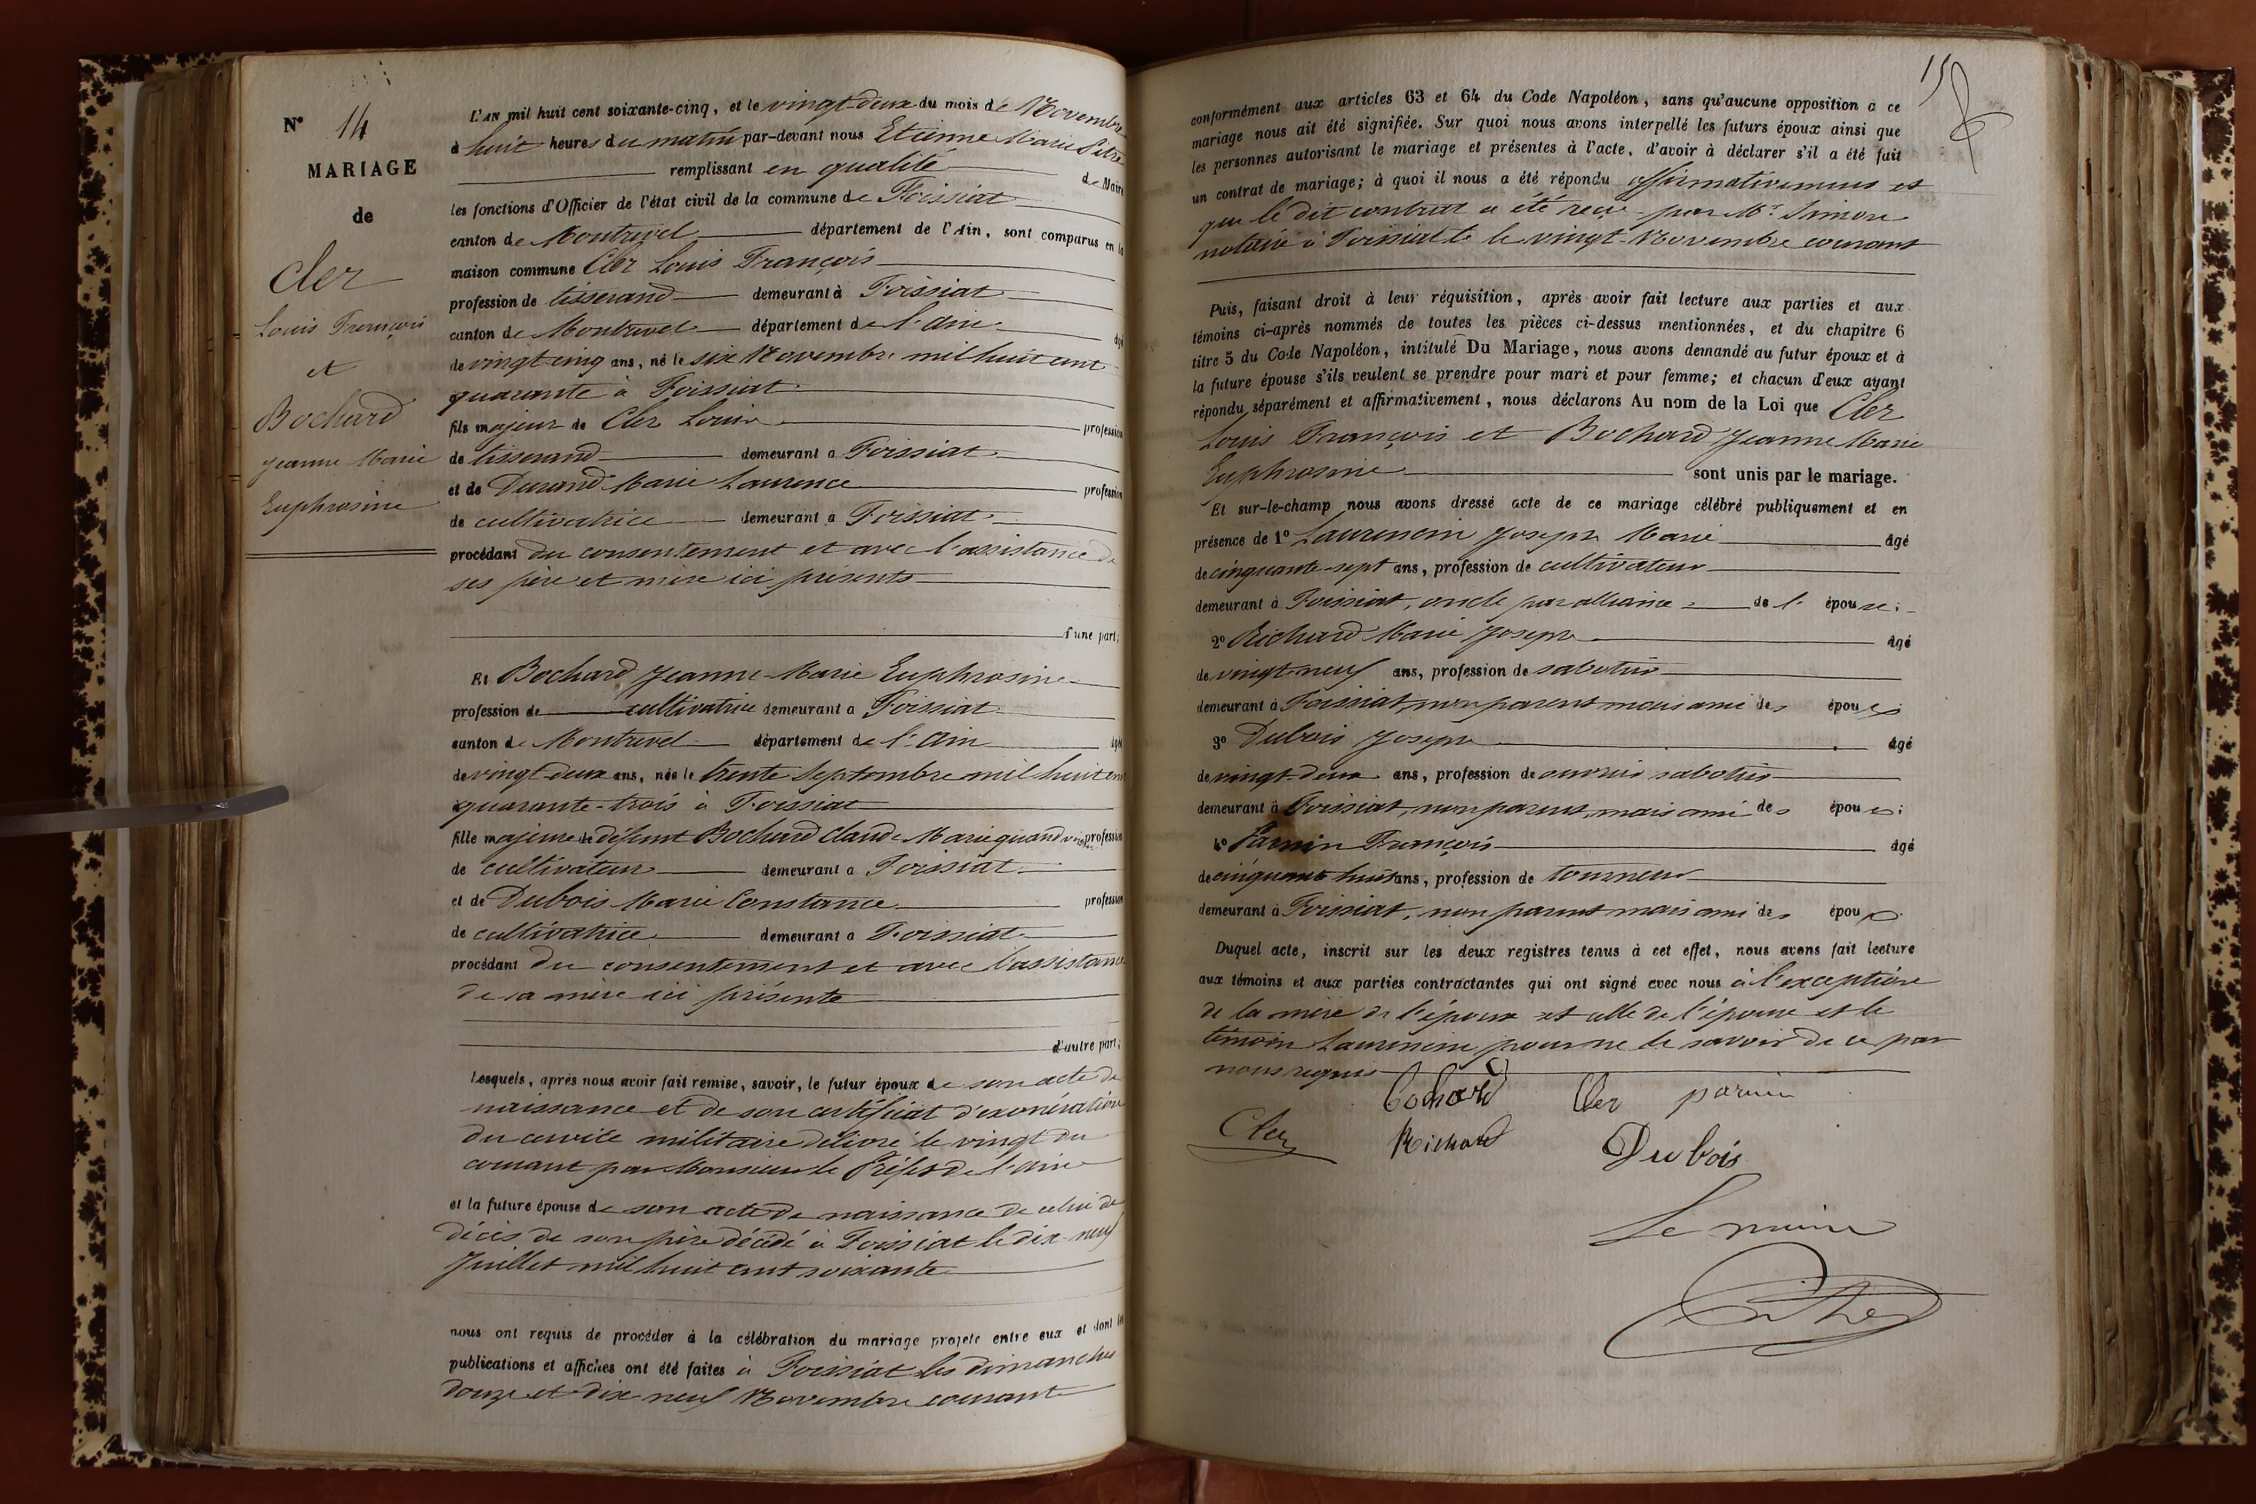 N° 14
MARIAGE
de
Cler
Louis François
et
Bochard
Jeanne Marie
Euphrosine
L'AN mil huit cent soixante-cinq, et le vingt-deux du mois de Novembre
à huit heures du matin par-devant nous Etienne Marie
remplissant en qualité de Maire
les fonctions d'Officier de l'état civil de la commune de Foissiat
canton de Montrevel département de l'Ain, sont comparus en la
maison commune Cler Louis François
profession de tisserand demeurant à Foissiat
canton de Montrevel département de l'Ain âgé
de vingt cinq ans, né le six Novembre mil huit cent
quarante à Foissiat
fils majeur de Cler Louis profession
de tisserand demeurant a Foissiat
et de Durand Marie Laurence profession
de cultivatrice demeurant a Foissiat
procédant du consentement et avec l'assistance de
ses père et mère ici présents
d'une part;
Et Bochard Jeanne-Marie Euphrosine
profession de cultivatrice demeurant a Foissiat
canton de Montrevel département de l'Ain âgée
de vingt deux ans, née le trente Septembre mil huit cent
quarante-trois à Foissiat
fille majeure de défunt Bochard Claude Marie quand vivait profession
de cultivateur demeurant a Foissiat
et de Dubois Marie Constance profession
de cultivatrice demeurant a Foissiat
procédant du consentement et avec l'assistance
de sa mère ici présente
d'autre part;
Lesquels, après nous avoir fait remise, savoir, le futur époux de son acte de
naissance et de son certificat d'exonération
du service militaire délivré le vingt du
courant par Monsieur le Préfet de l'Ain
et la future épouse de son acte de naissance de celui de
décès de son père décédé à Foissiat le dix-neuf
Juillet mil huit cent soixante
nous ont requis de procéder à la célébration du mariage projeté entre eux et dont les
publications et affiches ont été faites à Foissiat les dimanches
douze et dix neuf Novembre courant
15
conformément aux articles 63 et 64 du Code Napoléon, sans qu'aucune opposition à ce
mariage nous ait été signifiée. Sur quoi nous avons interpellé les futurs époux ainsi que
les personnes autorisant le mariage et présentes à l'acte, d'avoir à déclarer s'il a été fait
un contrat de mariage; à quoi il nous a été répondu affirmativement et
que le dit contrat a été reçu par Mr. Simon
notaire à Foissiat le le vingt Novembre courant
Puis, faisant droit à leur réquisition, après avoir fait lecture aux parties et aux
témoins ci-après nommés de toutes les pièces ci-dessus mentionnées, et du chapitre 6
titre 5 du Code Napoléon, intitulé Du Mariage, nous avons demandé au futur époux et à
la future épouse s'ils veulent se prendre pour mari et pour femme; et chacun d'eux ayant
répondu séparément et affirmativement, nous déclarons Au nom de la Loi que Cler
Louis François et Bochard Jeanne Marie
Euphrosine sont unis par le mariage.
Et sur-le-champ nous avons dressé acte de ce mariage célébré publiquement et en
présence de 1° Laurencin Joseph Marie âgé
de cinquante-sept ans, profession de cultivateur
demeurant à Foissiat, oncle par alliance de l'épouse;
2° Richard Marie Joseph âgé
de vingt-neuf ans, profession de sabotier
demeurant à Foissiat, non parent mais ami des époux
3° Dubois Joseph âgé
de vingt-deux ans, profession de ouvrier sabotier
demeurant à Foissiat, non parent, mais ami des époux;
4° Parnin François âgé
de cinquante huit ans, profession de tourneur
demeurant à Foissiat, non parent mais ami des époux.
Duquel acte, inscrit sur les deux registres tenus à cet effet, nous avons fait lecture
aux témoins et aux parties contractantes qui ont signé avec nous à l'exception
de la mère de l'époux et celle de l'épouse et le
témoin Laurencin pour ne le savoir de ce par
nous requis
Bochard Cler parnin
Cler Richard Dubois
Le maire